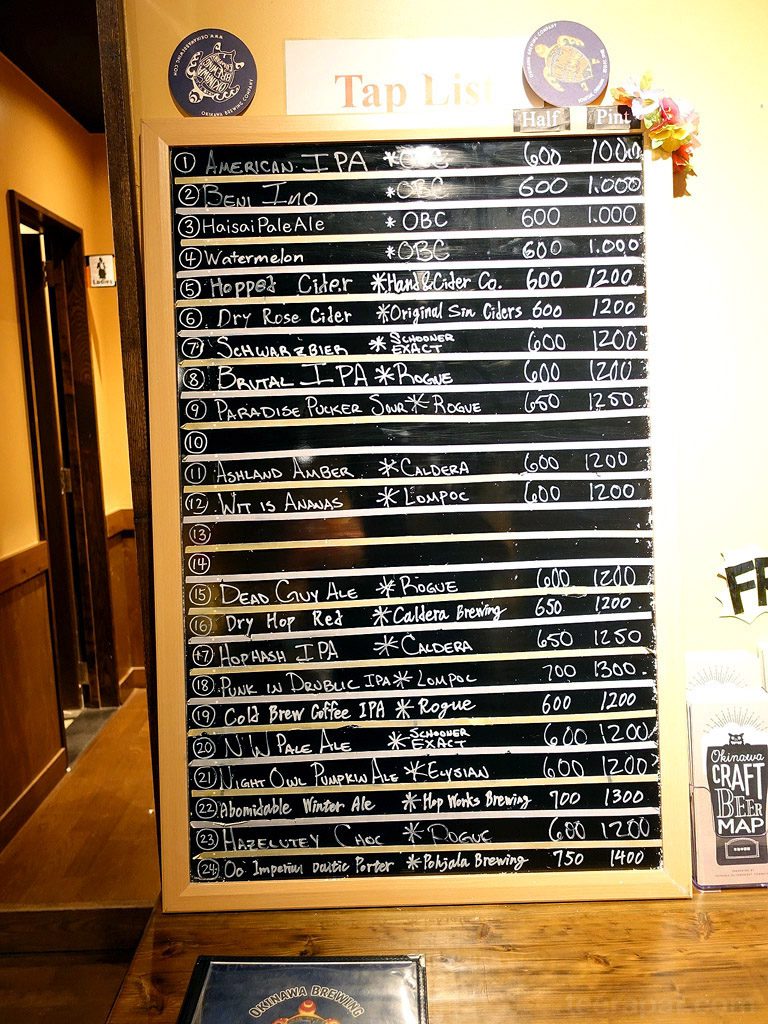 WWW.OKINAWABEER.COM
OKINAWA BREWING COMPANY
Tap List
Half Pint
1 AMERICAN IPA *OBC 600 1000
2 BENI IMO *OBC 600 1.000
3 Haisai Pale Ale * OBC 600 1.000
4 Watermelon *OBC 600 1.000
5 Hopped Cider *Hand&Cider Co. 600 1200
6 Dry Rose Cider *Original Sin Ciders 600 1200
7 SCHWARZBIER * SCHOONER EXACT 600 1200
8 BRUTAL IPA *ROGUE 600 1200
9 PARADISE PUCKER SOUR * ROGUE 650 1250
10
11 ASHLAND AMBER *CALDERA 600 1200
12 WIT IS ANANAS *LOMPOC 600 1200
13
14
15 DEAD GUY ALE *ROGUE 600 1200
16 Dry Hop Red *Caldera Brewing 650 1200
17 HOPHASH IPA *CALDERA 650 1250
18 PUNK IN DRUBLIC IPA* LOMPOC 700 1300
19 Cold Brew Coffee IPA * Rogue 600 1200
20 NW PALE ALE * SCHOONER EXACT 600 1200
21 NIGHT OWL PUMPKIN ALE *ELYSIAN 600 1200
22 Abomidable Winter Ale *Hop Works Brewing 700 1300
23 HAZELUTEY CHOC * ROGUE 600 1200
24 Oo Imperium Daltic Porter *Pohjala Brewing 750 1400
Ladies
FR
Okinawa
CRAFT
BEER
MAP
OKINAWA BREWING